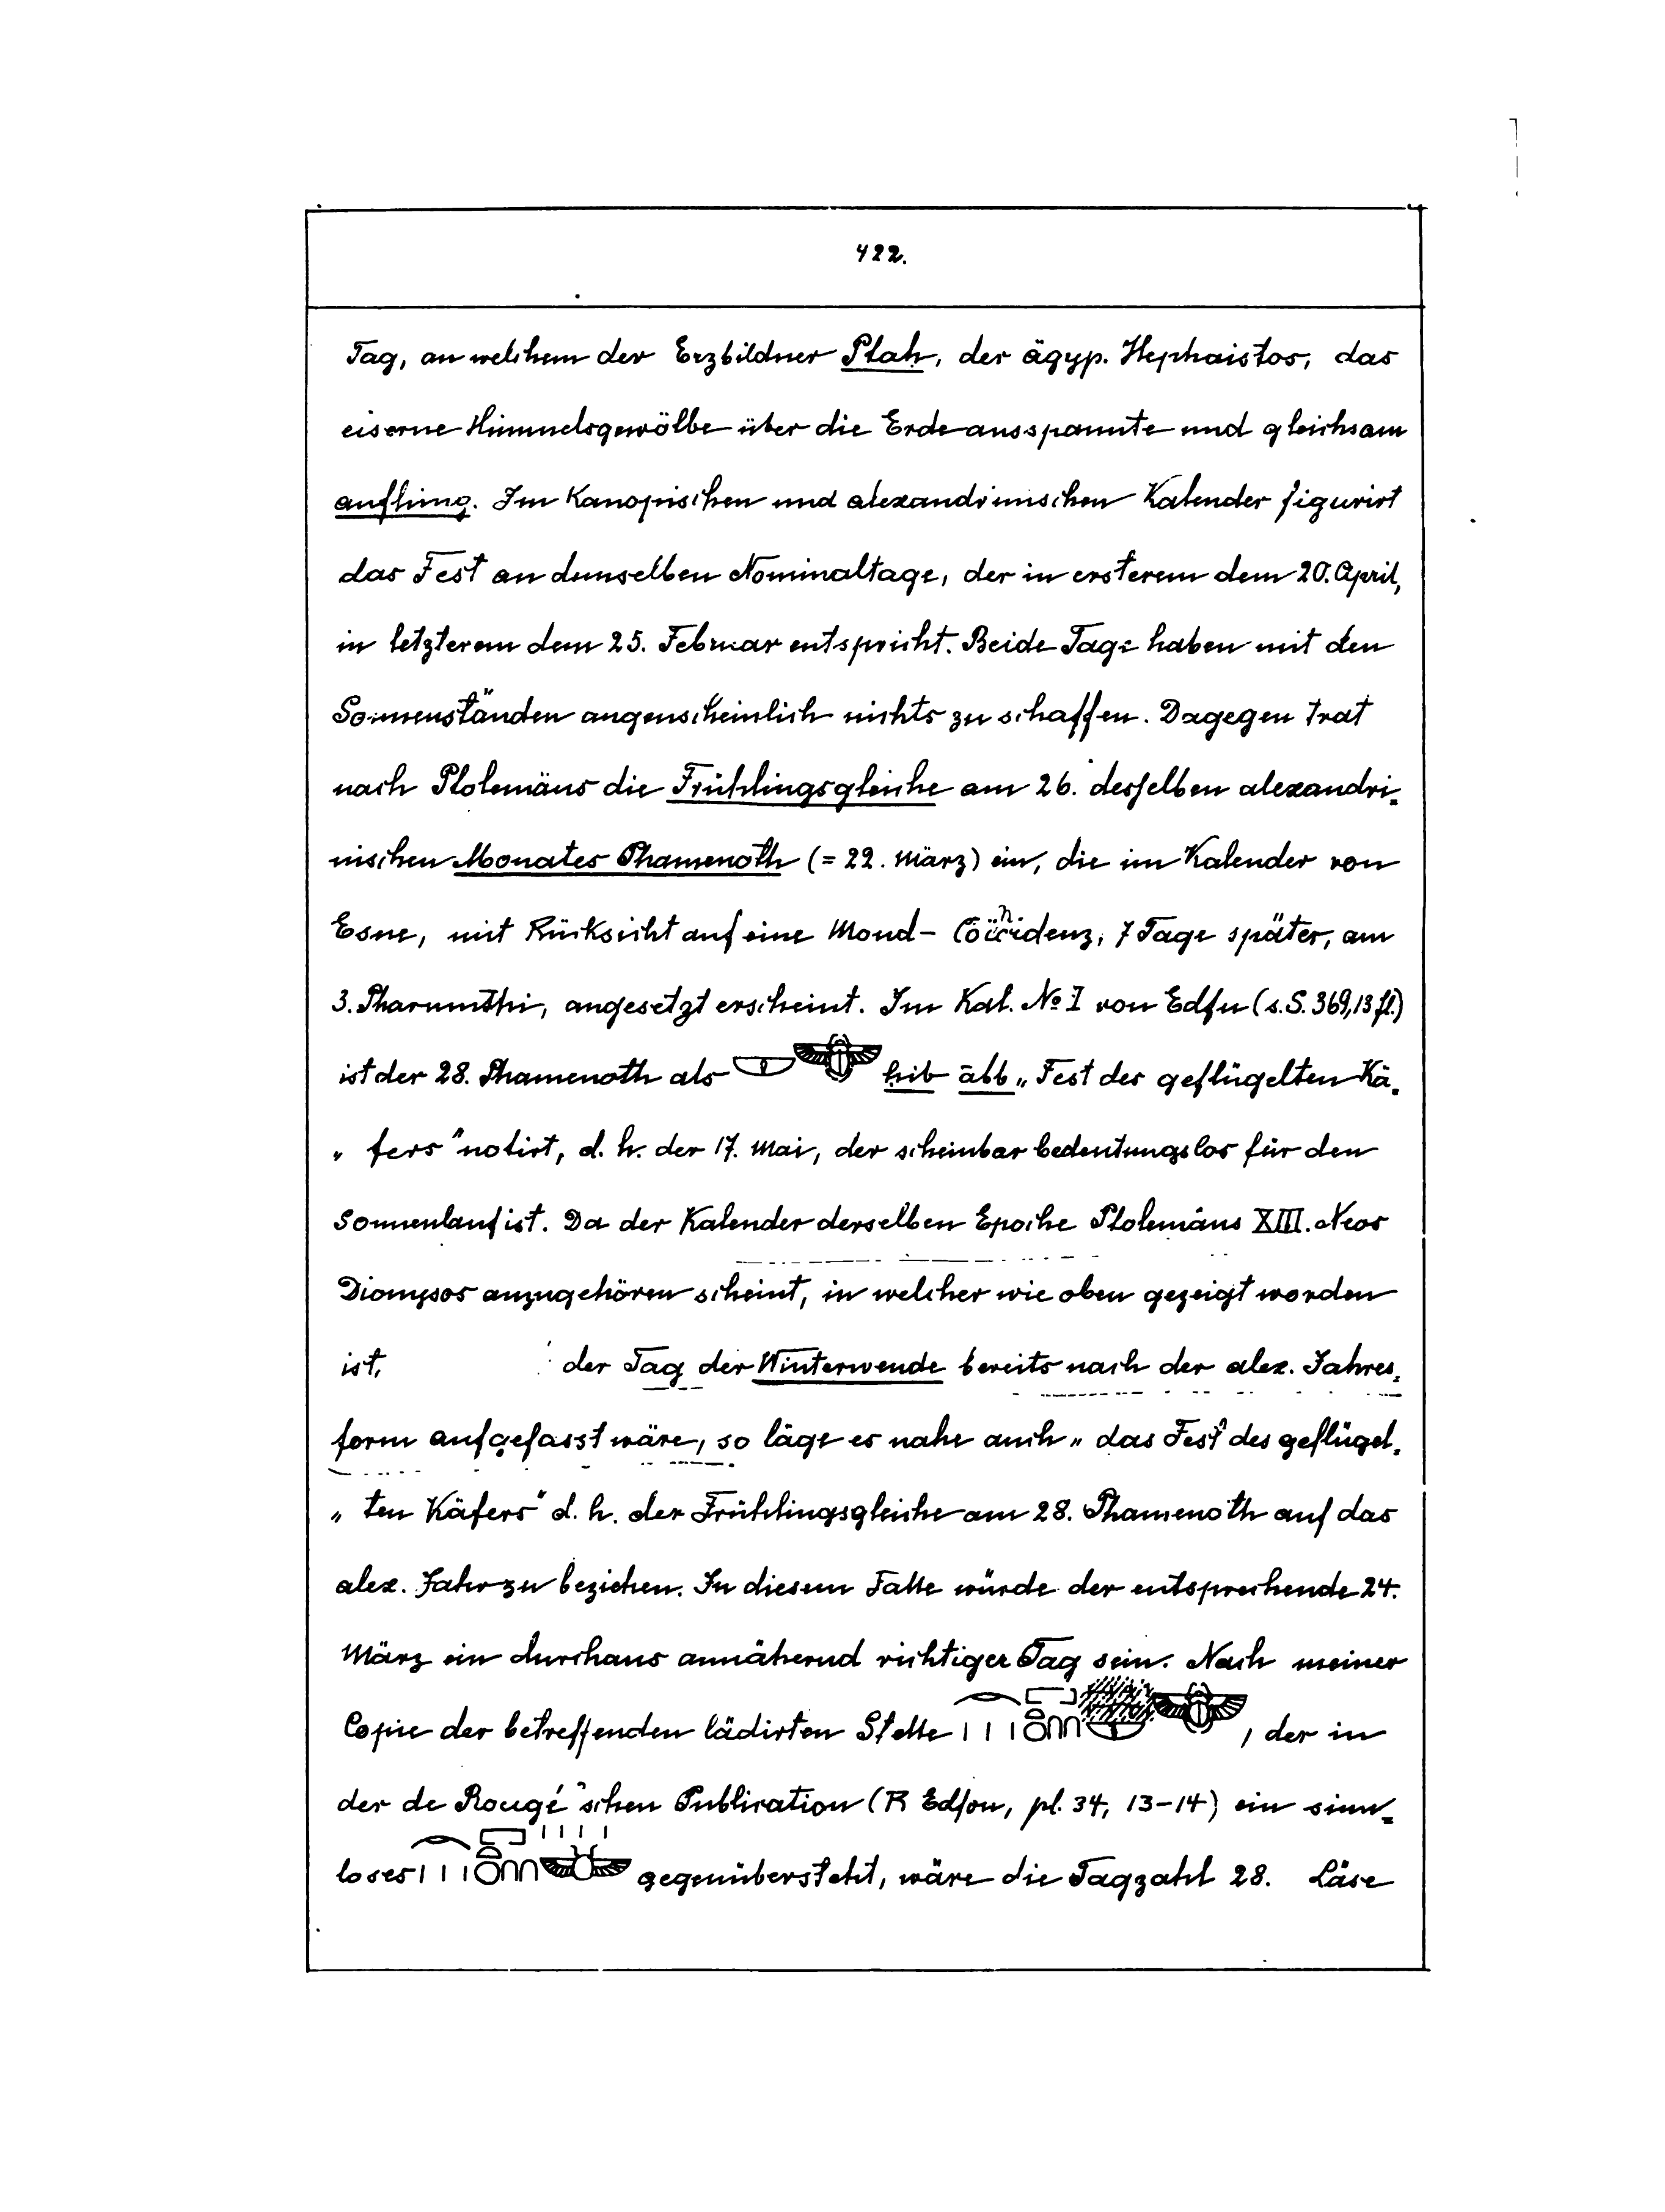 422.
Tag, an welchem der Erzbildner Ptaḥ, der ägyp. Hephaistos, das
eiserne Himmelsgewölbe über die Erde ausspannte und gleichsam
aufhing. Im Kanopischen und alexandrinischen Kalender figurirt
das Fest an demselben Nominaltage, der in ersterem dem 20. April,
in letzterem dem 25. Februar entspricht. Beide Tage haben mit den
Sonnenständen augenscheinlich nichts zu schaffen. Dagegen trat
nach Ptolemäus die Frühlingsgleiche am 26. desselben alexandri-
nischen Monates Phamenoth (= 22. März) ein, die im Kalender von
Esne, mit Rücksicht auf eine Mond-Coïncidenz, 7 Tage später, am
3. Pharmuthi, angesetzt erscheint. Im Kal. No I von Edfu (s. S. 369,13 fl.)
ist der 28. Phamenoth als ḥib äbb „Fest des geflügelten Kä-
„fers" notirt, d. h. der 17. Mai, der scheinbar bedeutungslos für den
Sonnenlauf ist. Da der Kalender derselben Epoche Ptolemäus XIII. Neos
Dionysos anzugehören scheint, in welcher wie oben gezeigt worden
ist, der Tag der Winterwende bereits nach der alex. Jahres-
form aufgefasst wäre, so läge es nahe auch „das Fest des geflügel-
„ten Käfers" d. h. der Frühlingsgleiche am 28. Phamenoth auf das
alex. Jahr zu beziehen. In diesem Falle würde der entsprechende 24.
März ein durchaus annähernd richtiger Tag sein. Nach meiner
Copie der betreffenden lädirten Stelle , der in
der de Rougé'schen Publication (R Edfou, pl. 34, 13-14) ein sinn-
loses gegenübersteht, wäre die Tagzahl 28. Läse